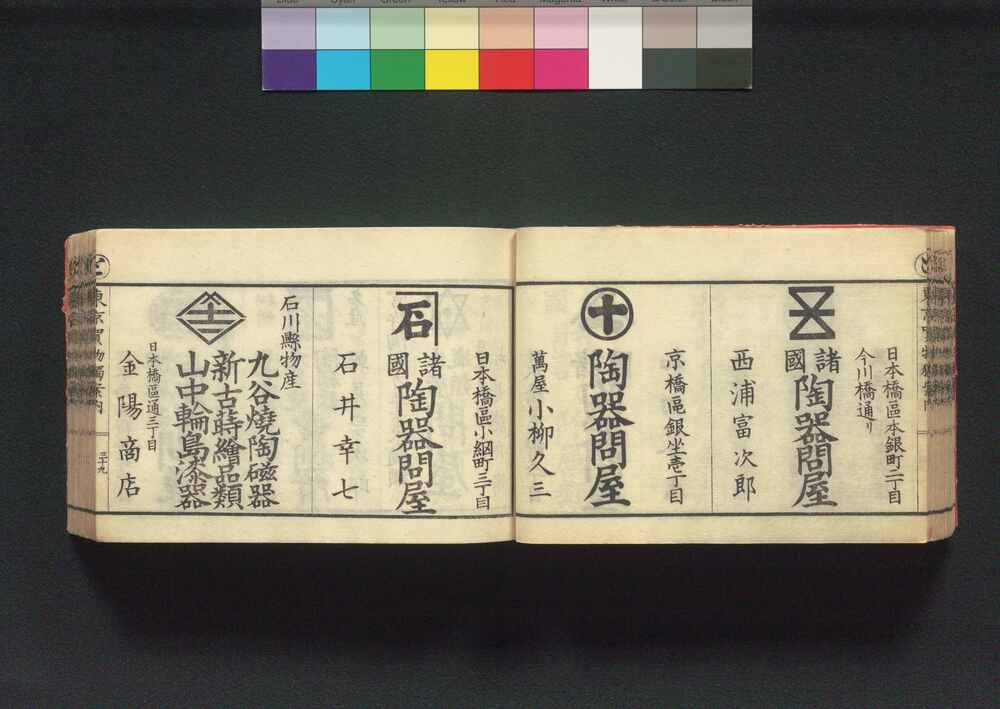 日本橋區本銀町二丁目
今川橋通リ
諸國陶器問屋
西浦富次郎
京橋區銀坐壱丁目
十
陶器問屋
萬屋小柳久三
日本橋區小網町三丁目
石
諸國陶器問屋
石井幸七
石川縣物産
九谷燒陶磁器
新古蒔繪品類
山中輪島漆器
日本橋區通三丁目
金陽商店
三十九